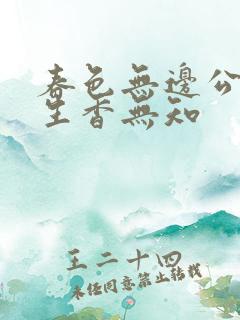 春色無邊公
生香無知
王二十四
未經同意禁止轉載